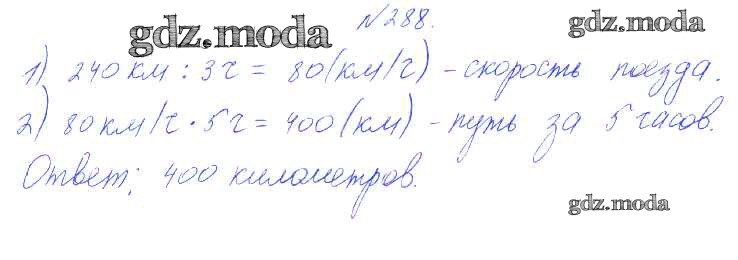 №288.
gdz.moda
gdz.moda
1) 240 км : 3 ч = 80 (км/ч) - скорость поезда.
2) 80 км/ч · 5 ч = 400 (км) - путь за 5 часов.
Ответ: 400 километров.
gdz.moda